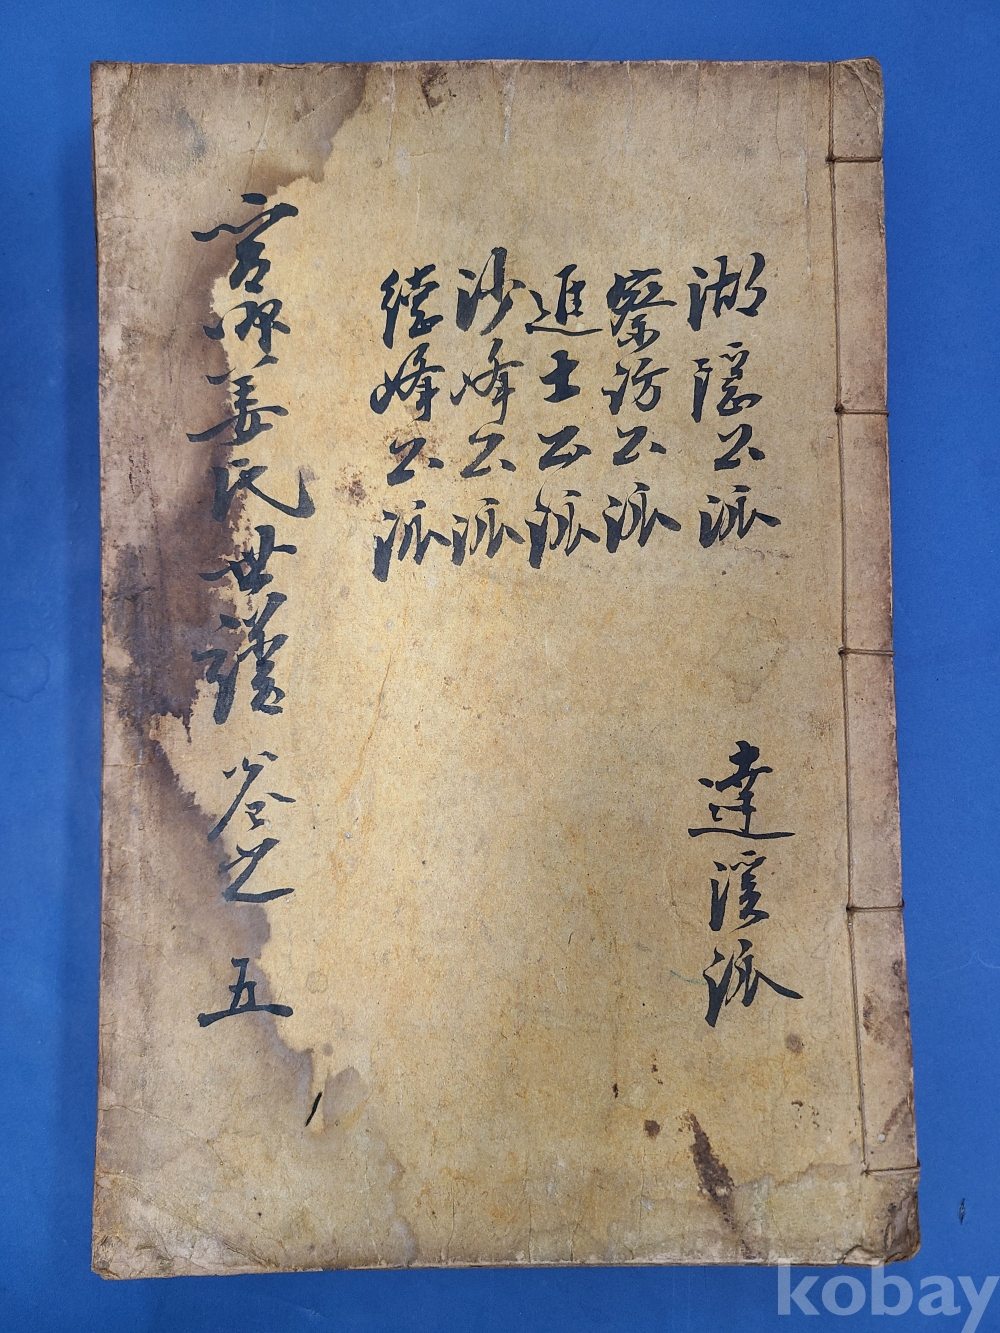 湖隱公派
達溪派
察訪公派
進士公派
沙峰公派
德峰公派
晉州姜氏世譜 卷之 五
kobay